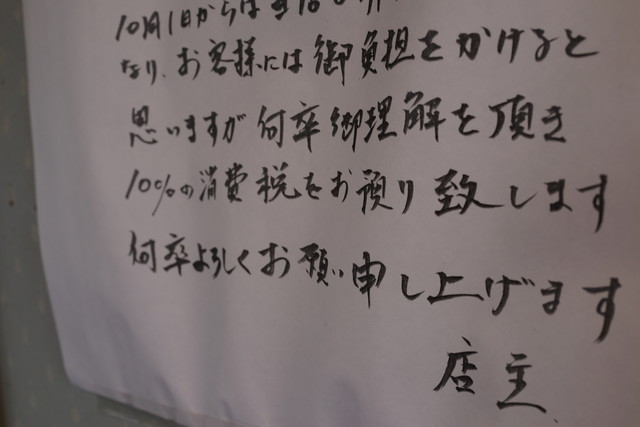 10月1日からは
なり、お客様には御負担をかけると
思いますが何卒御理解を頂き
10%の消費税をお預り致します
何卒よろしくお願い申し上げます
店主